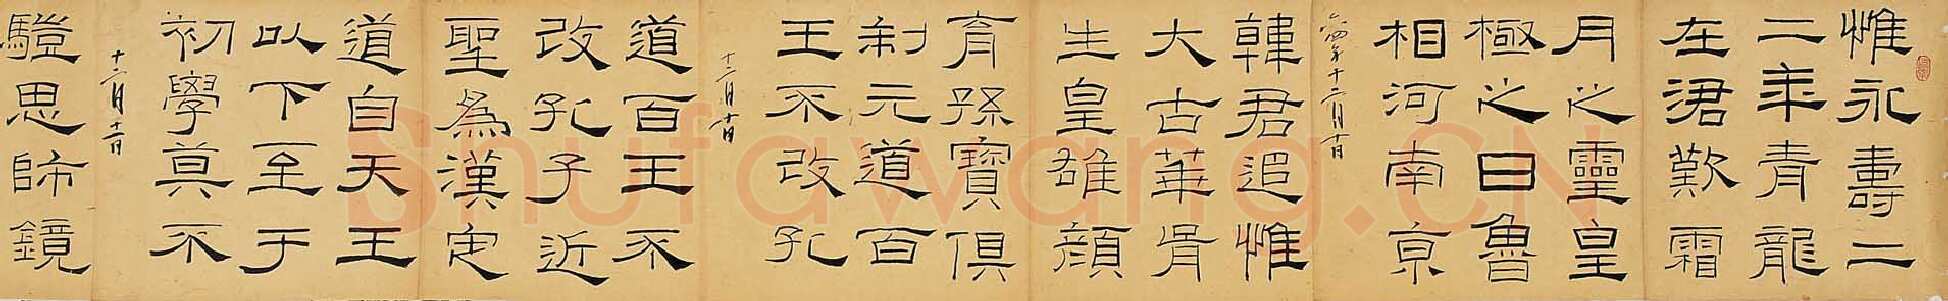 惟永壽二
二年青龍
在涒歎霜
月之靈皇
極之日魯
相河南京
十二月十日
韓君追惟
大古華胥
生皇雄顏
育孫寶俱
制元道百
王不改孔
十二月十日
道百王不
改孔子近
聖為漢定
道自天王
以下至于
初學莫不
十二月十一日
驥思師鏡
Shufawang.CN